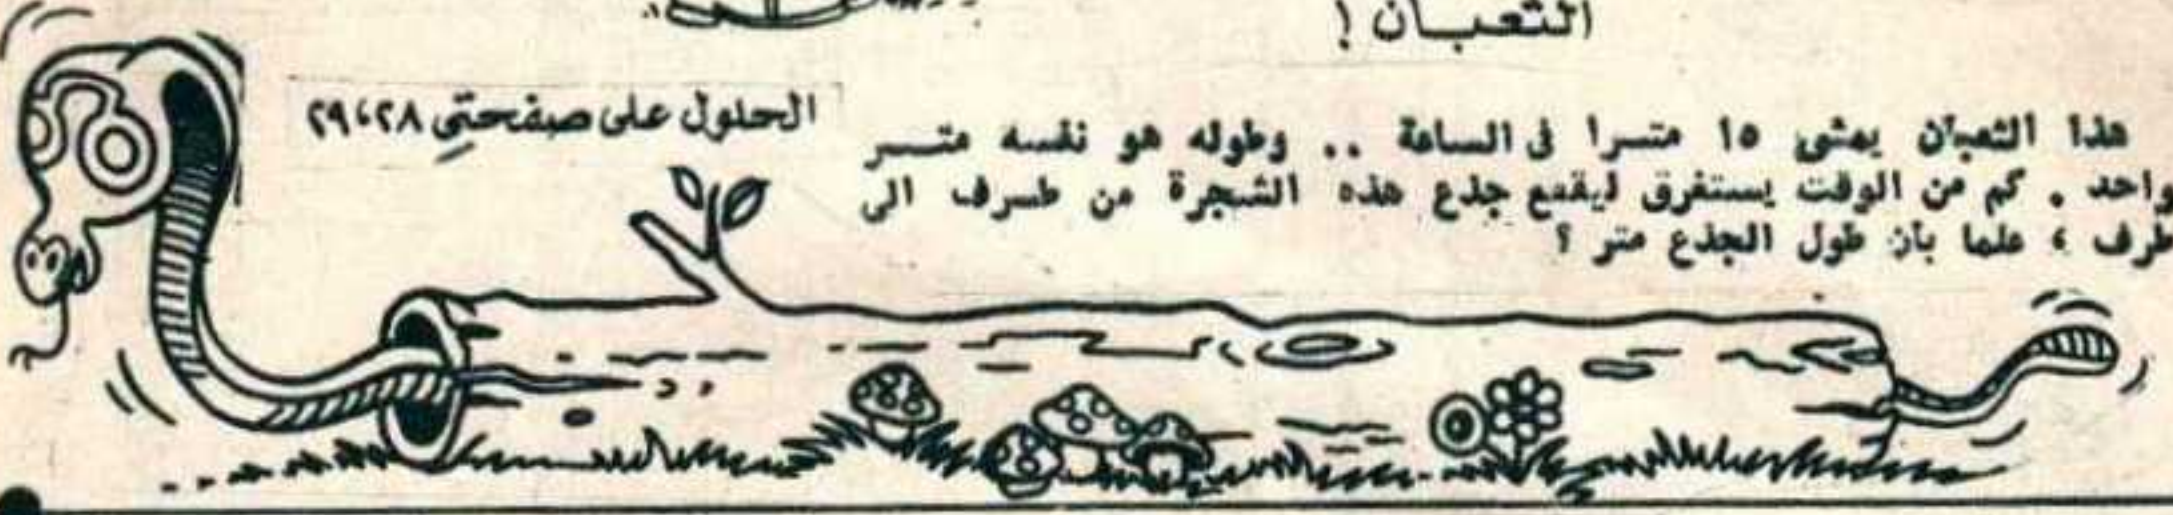 الثعبان !
الحلول على صفحتي ٢٨،٢٩
هذا الثعبان يمشي ١٥ مترا في الساعة .. وطوله هو نفسه متر
واحد . كم من الوقت يستغرق ليقطع جذع هذه الشجرة من طرف الى
طرف ، علما بأن طول الجذع متر ؟